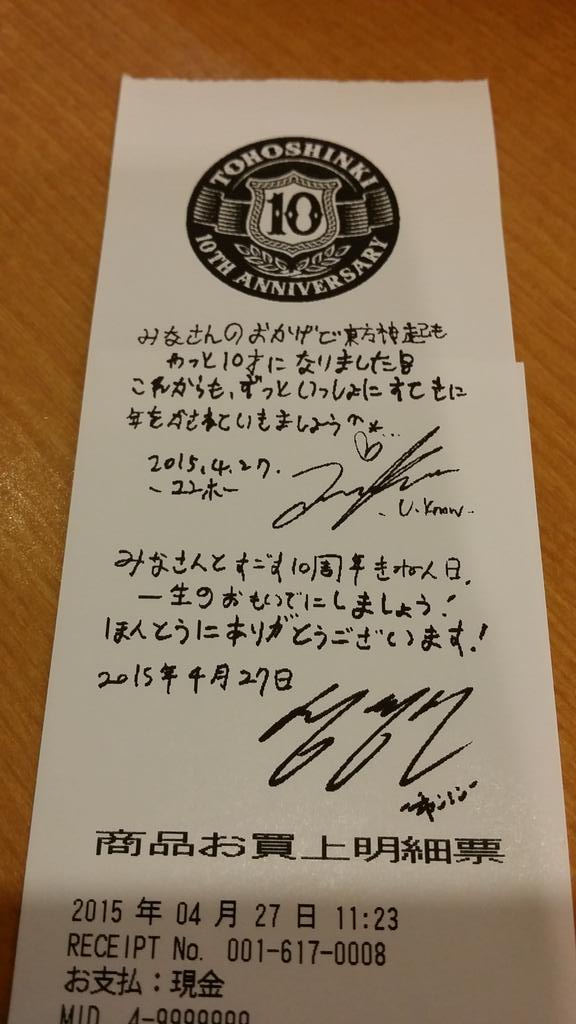 TOHOSHINKI
10
10TH ANNIVERSARY
みなさんのおかげで東方神起も
やっと10才になりました
これからも、ずっといっしょにすてきに
年をかさねていきましょう
2015.4.27.
ユンホ
U-Know
みなさんとすごす10周年きねん日。
一生のおもいでにしましょう!
ほんとうにありがとうございます!
2015年4月27日
商品お買上明細票
2015 年 04 月 27 日 11:23
RECEIPT No. 001-617-0008
お支払:現金
MID 4-9999999